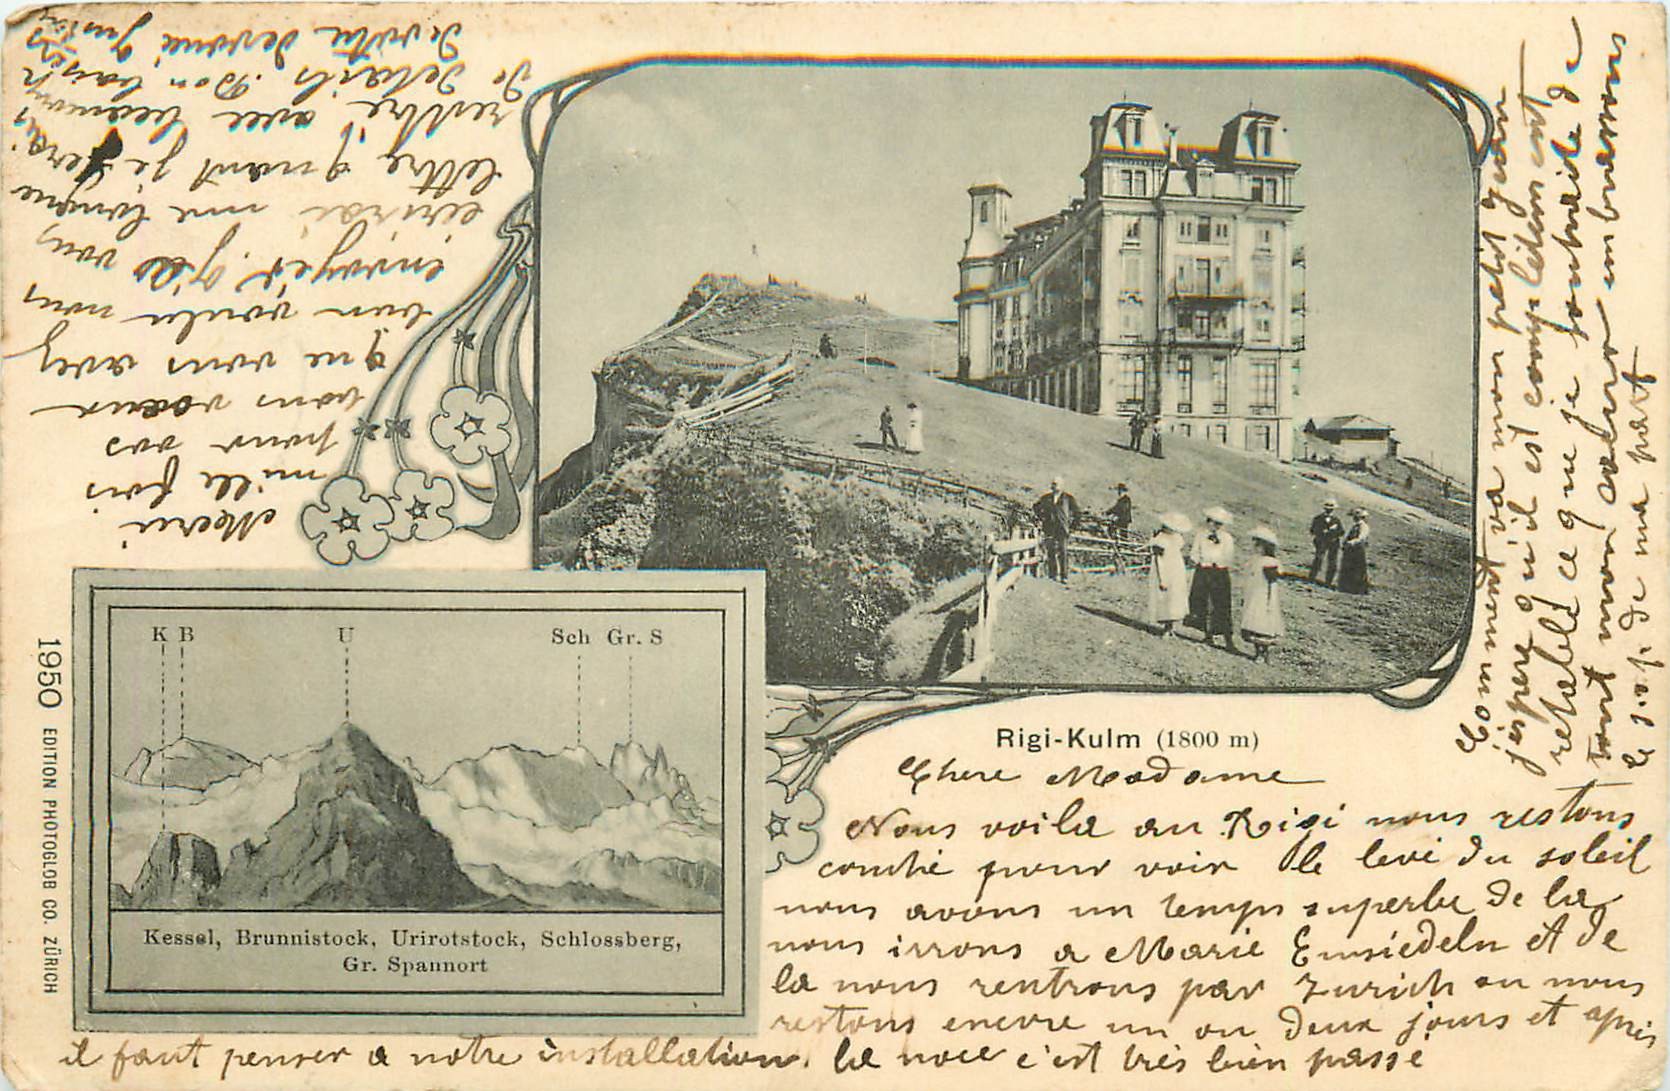 Rigi-Kulm (1800 m)
Chere Madame
Nous voila au Rigi nous restons
couché pour voir le levé du soleil
nous avons un temps superbe de la
nous irrons a Marie Einsiedeln et de
la nous rentrons par Zurich ou nous
restons encore un ou deux jours et après
il faut penser a notre installation. la noce c'est très bien passé
Comment va votre petit
j'espere qu'il est complètement
retablé ce que je souhaite de
tout mon cœur embrassons
le s.v.p. de ma part
Merci
mille fois
pour vos
bons vœux
que vous avez
bien voulu nous
envoyér. Je vous
écirai une longue
lettre quant je serai
rentré avec beaucoup
de details. Bon baisers
de votre devoué
K B
U
Sch Gr. S
Kessel, Brunnistock, Urirotstock, Schlossberg,
Gr. Spannort
1950 EDITION PHOTOGLOB CO. ZÜRICH